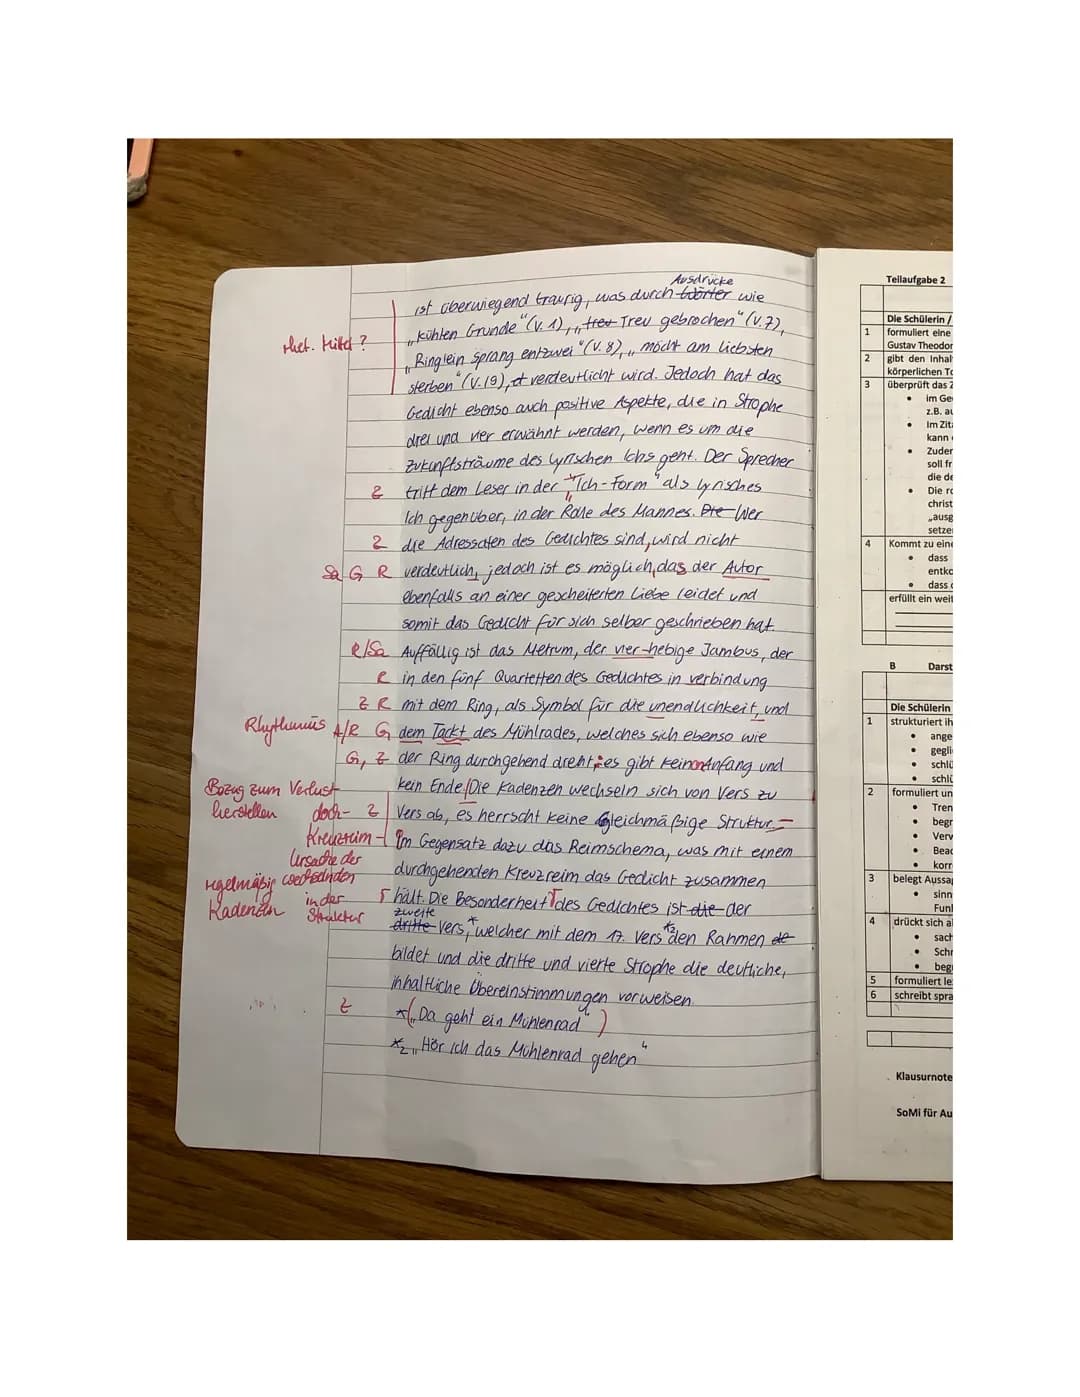 Ausdrücke
ist überwiegend traurig, was durch Wörter wie
„kühlen Grunde" (V. 1), „treu Treu gebrochen" (V.7),
rhet. Mittel?
„Ringlein sprang entzwei" (V. 8), „möcht am liebsten
sterben" (V. 19), verdeutlicht wird. Jedoch hat das
Gedicht ebenso auch positive Aspekte, die in Strophe
drei und vier erwähnt werden, wenn es um die
Zukunftsträume des lyrischen Ichs geht. Der Sprecher
Z tritt dem Leser in der „Ich-Form" als lyrisches
Ich gegenüber, in der Rolle des Mannes. Die Wer
Z die Adressaten des Gedichtes sind, wird nicht
Sa G R verdeutlich, jedoch ist es möglich, das der Autor
ebenfalls an einer gescheiterten Liebe leidet und
somit das Gedicht für sich selber geschrieben hat.
R/Sa Auffällig ist das Metrum, der vier-hebige Jambus, der
R in den fünf Quartetten des Gedichtes in verbindung
Z R mit dem Ring, als Symbol für die unendlichkeit, und
Rhythmus A/R G dem Tackt des Mühlrades, welches sich ebenso wie
G, Z der Ring durchgehend dreht, es gibt keinen Anfang und
Bezug zum Verlust kein Ende. Die Kadenzen wechseln sich von Vers zu
herstellen doch- Z Vers ab, es herrscht keine Gleichmäßige Struktur.
Kreuzreim - Im Gegensatz dazu das Reimschema, was mit einem
Ursache der
durchgehenden Kreuzreim das Gedicht zusammen
regelmäßig wechselnden
Kadenzen in der Struktur
hält. Die Besonderheit des Gedichtes ist die der
zweite
dritte Vers,* welcher mit dem 17. Vers *2 den Rahmen de
bildet und die dritte und vierte Strophe die deutliche,
inhaltliche Übereinstimmungen vorweisen.
Z *(„Da geht ein Mühlenrad")
*2 „Hör ich das Mühlenrad gehen"
Teilaufgabe 2
Die Schülerin /
1 formuliert eine
Gustav Theodor
2 gibt den Inhal
körperlichen To
3 überprüft das Z
• im Ge
z.B. au
• Im Zit
kann
• Zuder
soll fr
die de
• Die ro
christ
„ausg
setze
4 Kommt zu eine
• dass
entko
• dass
erfüllt ein weit
B Darst
Die Schülerin
1 strukturiert ih
• ange
• gegli
• schlü
• schlü
2 formuliert un
• Tren
• begr
• Verw
• Beac
• korr
3 belegt Aussag
• sinn
Funl
4 drückt sich a
• sach
• Schr
• begr
5 formuliert le
6 schreibt spra
Klausurnote
SoMi für Au